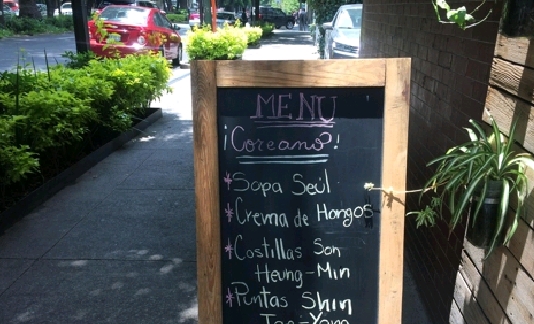 MENU
¡Coreano!
*Sopa Seúl
*Crema de Hongos
*Costillas Son
Heung-Min
*Puntas Shin
Tae-Yong